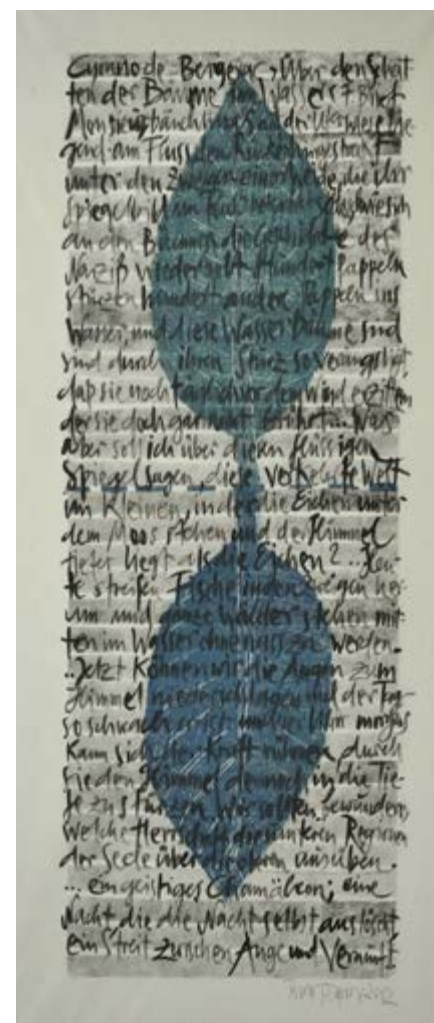 Cyrano de Bergerac, Über den Schat
ten der Bäume im Wasser: Brief
Monsieur, bäuchlings auf der Uferwiese lie
gend am Fluss, den Rücken
unter den Zweigen einer Weide, die ihr
Spiegelbild im
an den Bäumen die Geschichte des
Narziß wiederholt. Hundert Pappeln
stürzen hundert andre Pappeln ins
Wasser, und diese Wasser Bäume sind
sind durch ihren Sturz so verängstigt,
daß sie noch vor dem Wind erzittern
der sie doch gar nicht berührt. Was
aber soll ich über diesen flüssigen
Spiegel sagen, diese verkehrte Welt
im Kleinen, in der die Eichen unter
dem Moos stehen und der Himmel
tiefer liegt als die Eichen? .. Heu-
te streifen Fische in den Zweigen her-
um und ganze Wälder stehen mit-
ten im Wasser ohne nass zu werden.
..Jetzt Können wir die Augen zum
Himmel niederschlagen und der Tag
so schwach
Kann sich der Kraft rühmen, durch
sie den Himmel dennoch in die Tie-
fe zu stürzen. Wir sollten bewundern,
welche Herrschaft die unteren Regionen
der Seele über die oberen ausüben.
... ein geistiges Chamäleon; eine
Nacht die die Nacht selbst auslöscht
ein Streit zwischen Auge und Vernunft